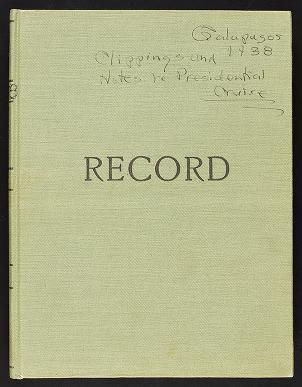 Galapagos
1938
Clippings and
Notes re Presidential
Cruise
RECORD